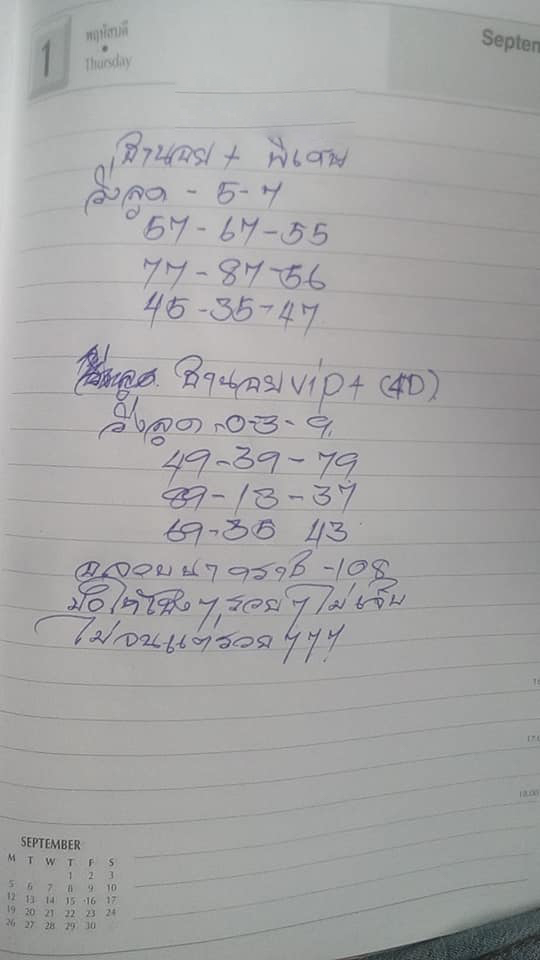 1 พฤหัสบดี
Thursday
Septem
ฮานอย + พิเศษ
วิ่งลูด - 5-7
57-67-55
77-87-56
45-35-47
ฮานอย vip + (4D)
วิ่งลูด -0-3-9
49-39-79
89-13-37
69-35 43
-108
ๆ รวย ๆ ไม่เจ็บ
ไม่จนแต่รวย ๆๆๆ
17.0
18.00
SEPTEMBER
M T W T F S
1 2 3
5 6 7 8 9 10
12 13 14 15 16 17
19 20 21 22 23 24
26 27 28 29 30